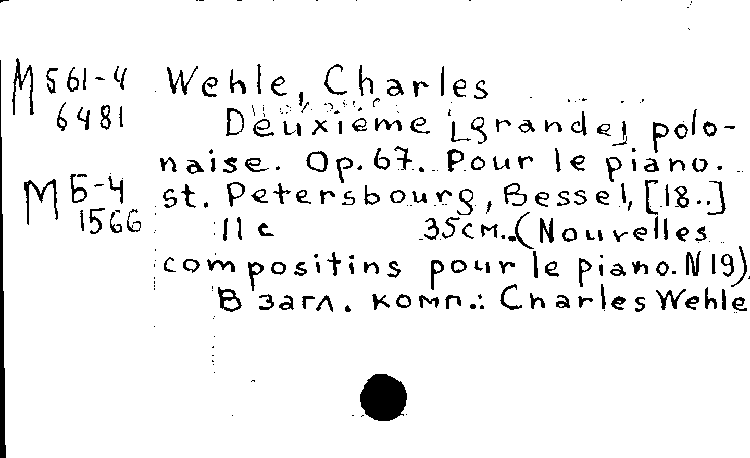 M 561-4 Wehle, Charles
6481 Deuxième [grande] polo-
naise. Op. 67. Pour le piano.
М Б-4 St. Petersbourg, Bessel, [18..]
1566 11 с 35см. (Nouvelles
compositins pour le piano. N 19)
В загл. комп.: Charles Wehle